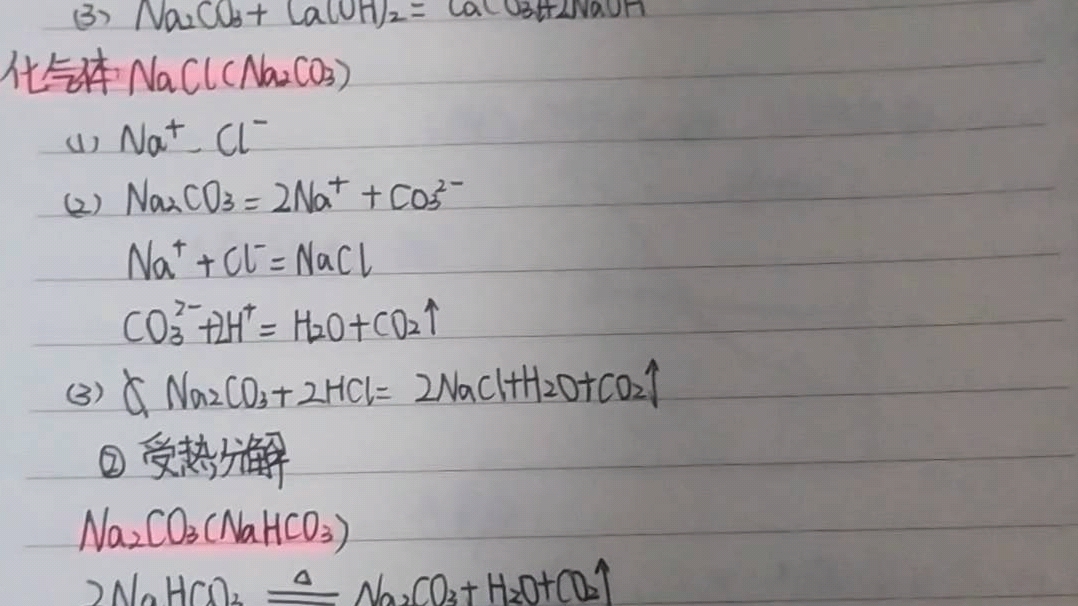 (3) Na₂CO₃ + Ca(OH)₂ = CaCO₃↓+2NaOH
化气体 NaCl(Na₂CO₃)
(1) Na⁺ Cl⁻
(2) Na₂CO₃ = 2Na⁺ + CO₃²⁻
Na⁺ + Cl⁻ = NaCl
CO₃²⁻ + 2H⁺ = H₂O + CO₂↑
(3) Na₂CO₃ + 2HCl = 2NaCl + H₂O + CO₂↑
② 受热分解
Na₂CO₃(NaHCO₃)
2NaHCO₃ ≜ Na₂CO₃ + H₂O + CO₂↑